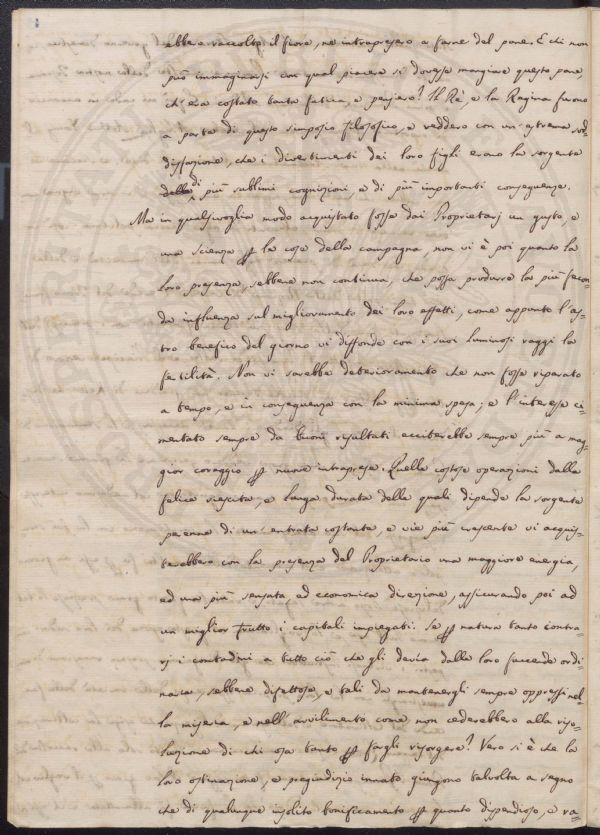 ebbero raccolto il fiore, ne intrapresero a farne del pane. E chi non
può immaginarsi con qual piacere si dovesse mangiare questo pane,
ch'era costato tanta fatica, e pensiero? Il Rè, e la Regina furono
a parte di questo simposio filosofico, e veddero con un'estrema sod=
disfazione, che i divertimenti dei loro figli erano la sorgente
delle di più sublimi cognizioni, e di più importanti conseguenze.
Ma in qualsivoglia modo acquistato fosse dai Proprietarj un gusto, e
una scienza p la cosa della campagna, non vi è poi quanto la
loro presenza, sebbene non continua, che possa produrre la più fecon=
da influenza sul miglioramento dei loro effetti, come appunto l'as=
tro benefico del giorno vi diffonde con i suoi luminosi raggi la
fertilità. Non vi sarebbe deterioramento che non fosse riparato
a tempo, e in conseguenza con la minima spesa; e l'interesse ci=
mentato sempre da buoni resultati ecciterebbe sempre più a mag=
gior coraggio p nuove intraprese. Quelle costose operazioni dalla
felice riescita, e lunga durata delle quali dipende la sorgente
perenne di un'entrata costante, e vie più crescente vi acquis=
terebbero con la presenza del Proprietario una maggiore energia,
ed una più sensata, ed economica direzione, assicurando poi ad
un miglior frutto i capitali impiegati. Se p natura tanto contra=
rj i contadini a tutto ciò che gli devia dalle loro faccende ordi=
narie, sebbene difettose, e tali da mantenergli sempre oppressi nel=
la miseria, e nell'avvilimento come non cederebbero alla riso=
luzione di chi osa tanto p fargli risorgere? Vero si è che la
loro ostinazione, e pregiudizio innato giungono talvolta a segno
che di qualunque insolito bonificamento p quanto dispendioso, e va=